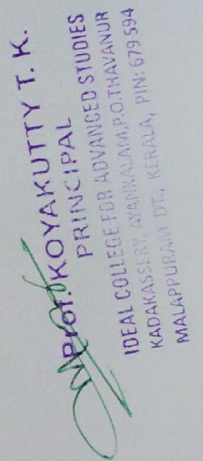 Prof. KOYAKUTTY T. K.
PRINCIPAL
IDEAL COLLEGE FOR ADVANCED STUDIES
KADAKASSERY, AYANKALAM,P.O.THAVANUR
MALAPPURAM DT., KERALA, PIN: 679 594